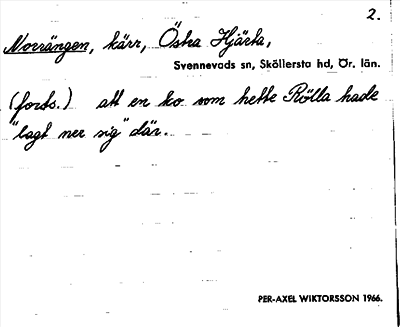 2.
Norrängen, kärr, Östra Hjärta,
Svennevads sn, Sköllersta hd, Ör. län.
(forts.) att en ko som hette Rölla hade
"lagt ner sig" där.
PER-AXEL WIKTORSSON 1966.